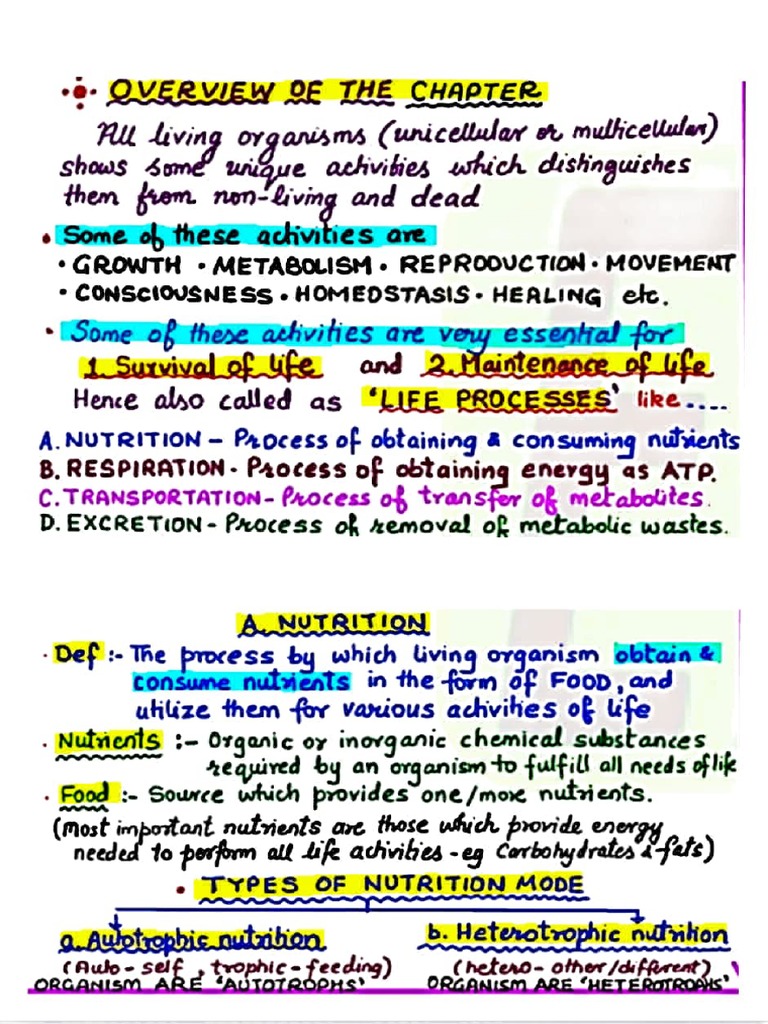 OVERVIEW OF THE CHAPTER
All living organisms (unicellular or multicellular)
shows some unique activities which distinguishes
them from non-living and dead
• Some of these activities are
• GROWTH • METABOLISM • REPRODUCTION • MOVEMENT
• CONSCIOUSNESS • HOMEDSTASIS • HEALING etc.
• Some of these activities are very essential for
1. Survival of life and 2. Maintenance of life
Hence also called as 'LIFE PROCESSES' like....
A. NUTRITION – Process of obtaining & consuming nutrients
B. RESPIRATION - Process of obtaining energy as ATP.
C. TRANSPORTATION - Process of transfer of metabolites.
D. EXCRETION - Process of removal of metabolic wastes.
A. NUTRITION
• Def :- The process by which living organism obtain &
consume nutrients in the form of FOOD, and
utilize them for various activities of life
• Nutrients :- Organic or inorganic chemical substances
required by an organism to fulfill all needs of life
• Food :- Source which provides one/more nutrients.
(Most important nutrients are those which provide energy
needed to perform all life activities - eg Carbohydrates & fats)
• TYPES OF NUTRITION MODE
a. Autotrophic nutrition b. Heterotrophic nutrition
(Auto - self, trophic - feeding) (hetero - other/different)
ORGANISM ARE 'AUTOTROPHS' ORGANISM ARE 'HETEROTROPHS'